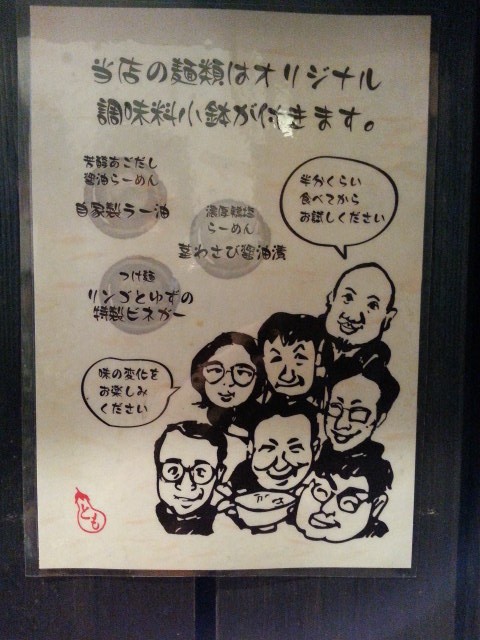 当店の麺類はオリジナル
調味料小鉢が付きます。
芳醇あごだし
醤油らーめん
自家製ラー油
濃厚鶏塩
らーめん
茎わさび醤油漬
つけ麺
リンゴとゆずの
特製ビネガー
半分くらい
食べてから
お試しください
味の変化を
お楽しみ
ください
とも